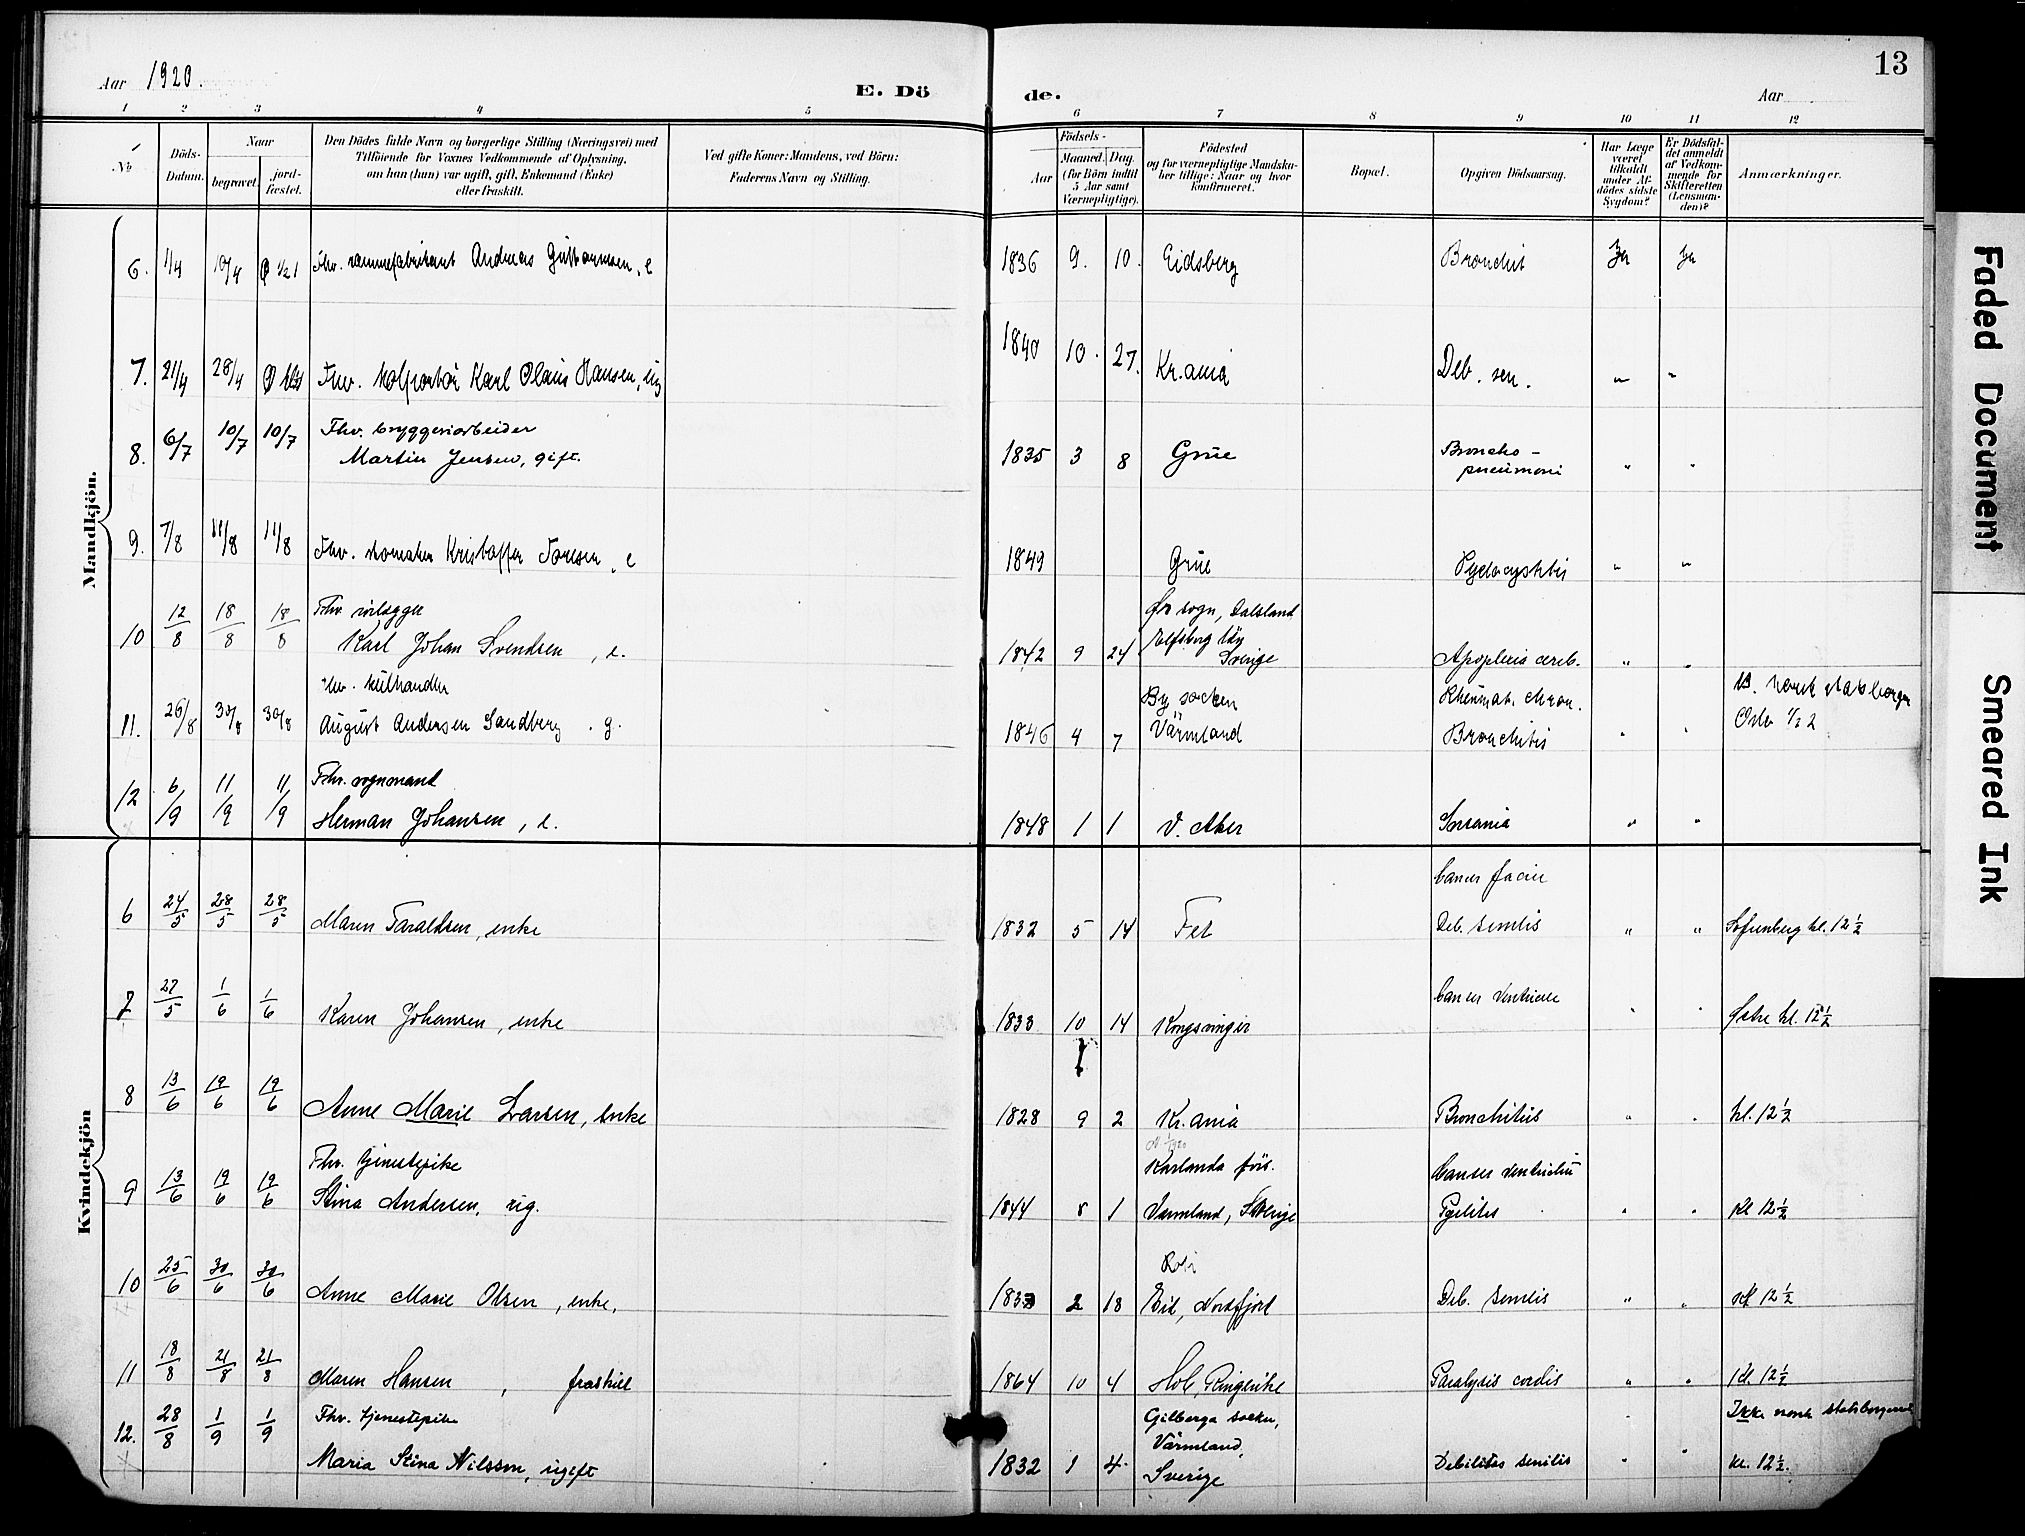 13
Aar 1920.
E. Dö
de.
Aar
1 2 3 4 5 6 7 8 9 10 11 12
No
Döds-
Datum.
Naar
begravet.
jord-
fæstet.
Den Dödes fulde Navn og borgerlige Stilling (Næringsvei) med
Tilföiende for Voxnes Vedkommende af Oplysning,
om han (hun) var ugift, gift, Enkemand (Enke)
eller fraskilt.
Ved gifte Koner: Mandens, ved Börn:
Faderens Navn og Stilling.
Födsels-
Aar
Maaned. Dag.
(for Börn indtil
5 Aar samt
Værnepligtige).
Födested
og for værnepligtige Mandska-
ber tillige: Naar og hvor
konfirmeret.
Bopæl.
Opgiven Dödsaarsag.
Har Læge
været
tilkaldt
under Af-
dödes sidste
Sygdom?
Er Dödsfal-
det anmeldt
af Vedkom-
mende for
Skifteretten
(Lensman-
den)?
Anmærkninger.
Mandkjön.
6. 1/4 10/4 Fhv. Andreas Guttormsen, e 1836 9. 10. Eidsberg Bronchit Ja Ja
7. 21/4 28/4 Fhv. Kolportör Karl Olaus Hansen, ug 1840 10. 27. Kr.ania Deb. sen. " "
8. 6/7 10/7 10/7 Fhv. bryggeriarbeider
Martin Jensen, gift. 1835 3 8 Grue Broncho-
pneumoni " "
9. 7/8 11/8 11/8 Fhv. skomaker Kristoffer Toresen, e 1849 Grue Pyelocystitis " "
10 12/8 18/8 18/8 Fhv.
Karl Johan Svendsen, e. 1842 9 24 sogn, Dalsland
Elfsborg län
Sverige Apoplexia cereb. " "
11. 26/8 30/8 30/8 Fhv. kulhandler
August Andersen Sandberg. g. 1846 4 7 By socken
Värmland Rheumat. chron.
Bronchitis " " norsk statsborger
Oslo
12 6/9 11/9 11/9 Fhv. vognmand
Herman Johansen, e. 1848 1 1 V. Aker Insania " "
Kvindekjön
6 24/5 28/5 28/5 Maren Taraldsen, enke 1832 5 14 Fet Cancer faciei
Deb. senilis " " Sofienberg kl. 12 1/2
7 27/5 1/6 1/6 Karen Johansen, enke 1833 10 14 Kongsvinger Cancer Ventriculi " " Østre kl. 12 1/2
8 13/6 19/6 19/6 Anne Marie Larsen, enke 1828 9 2 Kr.ania Bronchitis " " kl. 12 1/2
9 13/6 19/6 19/6 Fhv. tjenestepike
Stina Andersen, ug. 1844 8 1 Karlanda förs.
Värmland, Sverige Cancer Ventriculi
Pyelites " " Kl 12 1/2
10 25/6 30/6 30/6 Anne Marie Olsen, enke, 1833 2 18 Eid, Nordfjord Deb. senilis " " Kl 12 1/2
11 18/8 21/8 21/8 Maren Hansen, fraskilt 1864 10 4 Hol, Ringerike Paralysis cordis " " Kl. 12 1/2
12. 28/8 1/9 1/9 Fhv. tjenestepike
Maria Stina Nilsson, ugift 1832 1 4 Gilberga socken,
Värmland,
Sverige Debilitas senilis " " Ikke norsk statsborger
kl. 12 1/2.
Faded Document
Smeared Ink